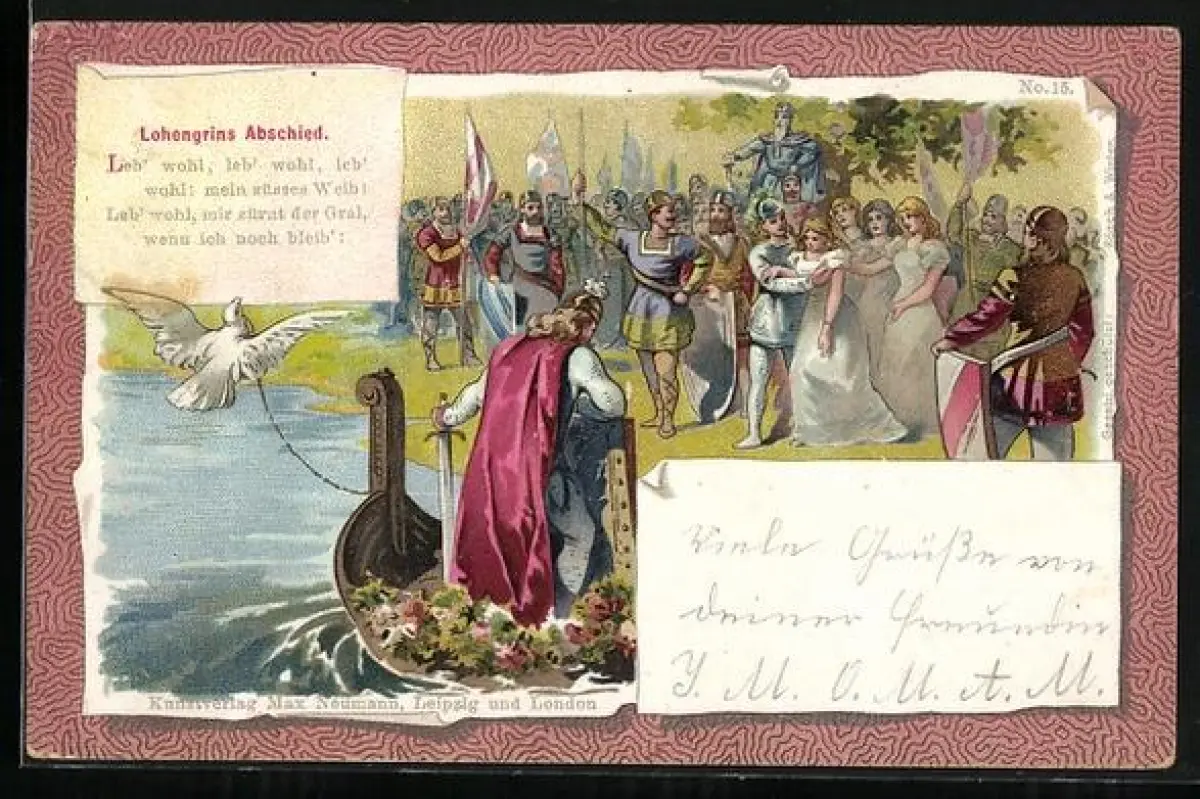 No. 15.
Lohengrins Abschied.
Leb' wohl, leb' wohl, leb'
wohl: mein süsses Weib!
Leb' wohl, mir zürnt der Gral,
wenn ich noch bleib':
Viele Grüße von
deiner Freundin
J. M. O. M. A. M.
Kunstverlag Max Neumann, Leipzig und London